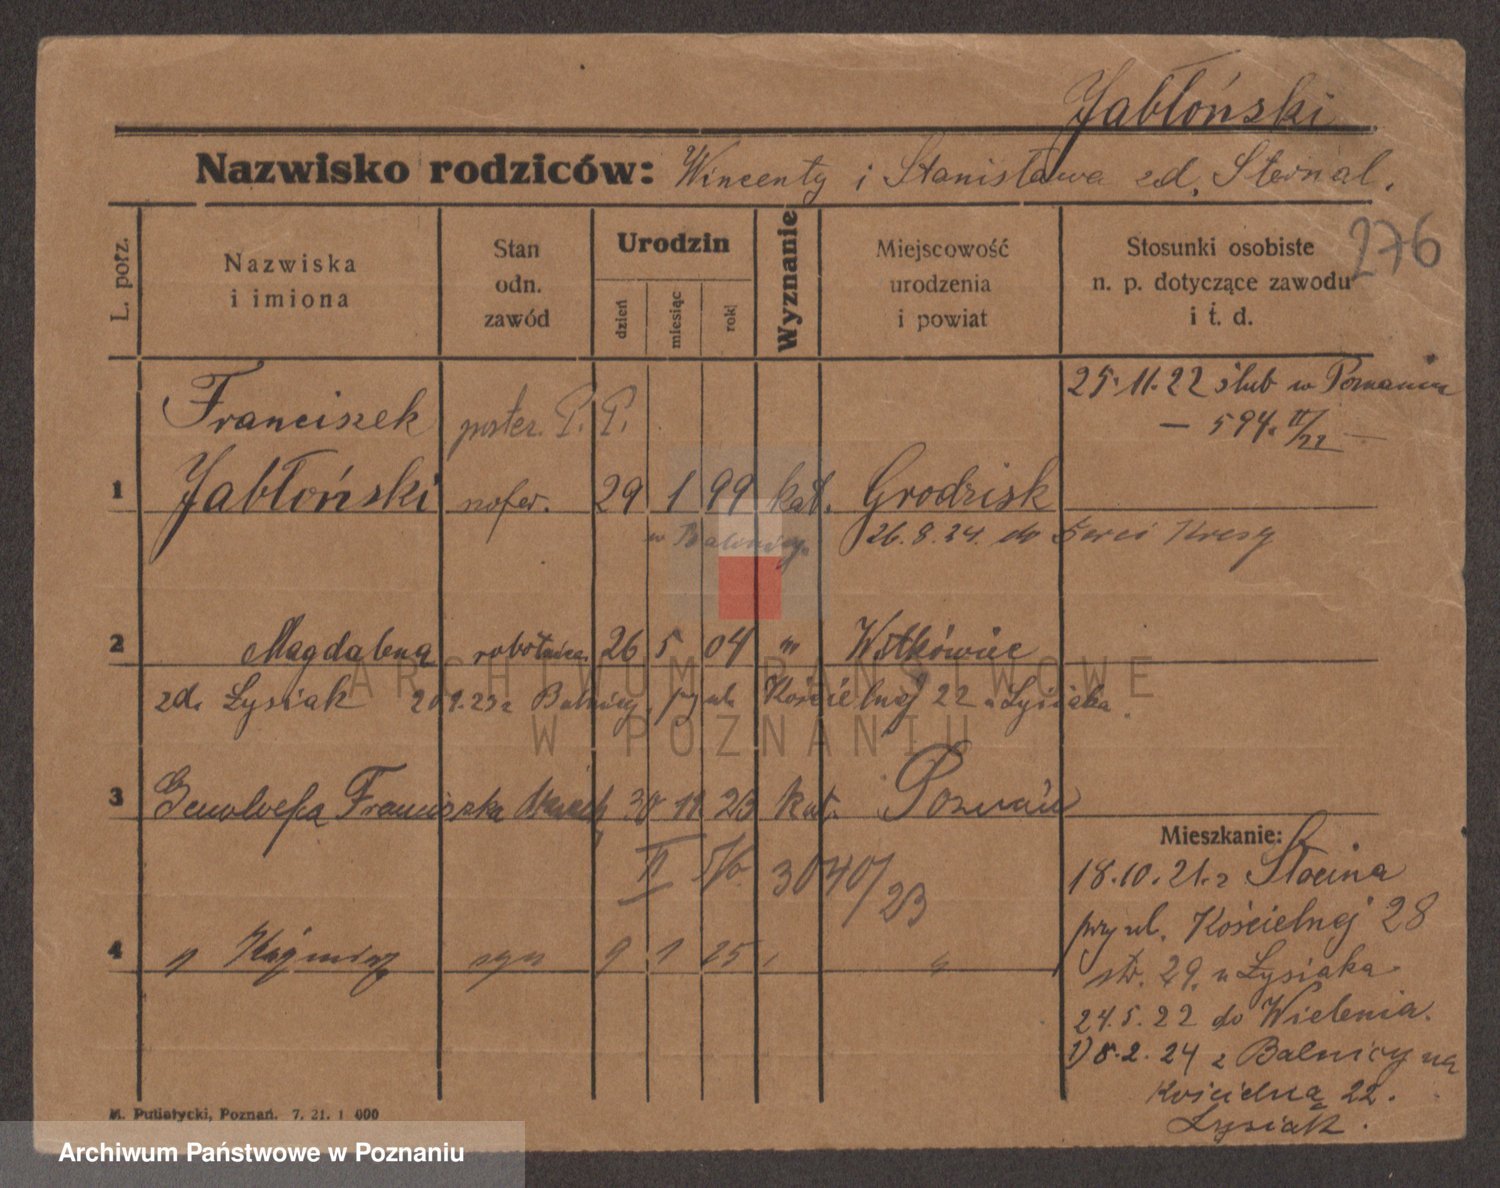 Jabłoński
Nazwisko rodziców: Wincenty i Stanisława zd. Sternal.
276
L. porz.
Nazwiska
i imiona
Stan
odn.
zawód
Urodzin
dzień
miesiąc
rok
Wyznanie
Miejscowość
urodzenia
i powiat
Stosunki osobiste
n. p. dotyczące zawodu
i t. d.
Franciszek poster. P. P.
25.11.22 ślub w Poznaniu
– 594. II/22 –
1 Jabłoński szofer. 29 1 99 kat. Grodzisk
w 26.8.24. do Kresy
2 Magdalena robotnica 26 5 04 " Witkówice
zd. Łysiak Balnicy przy ul. Kościelnej 22 u Łysiaka.
3 Genowefa Franciszka 30 11 23 kat. Poznań
II 3040/23
4 " Kaźmierz syn 9 1 25 , "
Mieszkanie:
18.10.21. z Słocina
przy ul. Kościelnej 28
str. 29. u Łysiaka
24.5.22 do Wielenia.
1) 8.2.24 z Balnicy na
Kościelną 22.
Łysiak.
M. Putiatycki, Poznań. 7. 21. 1 000
ARCHIWUM PAŃSTWOWE
W POZNANIU
Archiwum Państwowe w Poznaniu